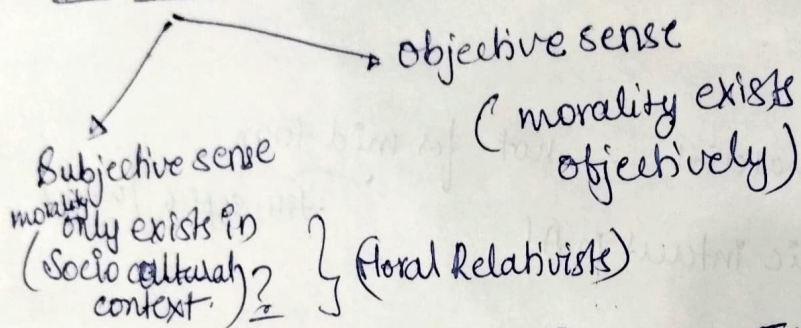 Objective sense
(morality exists
objectively)
Subjective sense
morality
only exists in
(Socio cultural)
context. ?
(Moral Relativists)